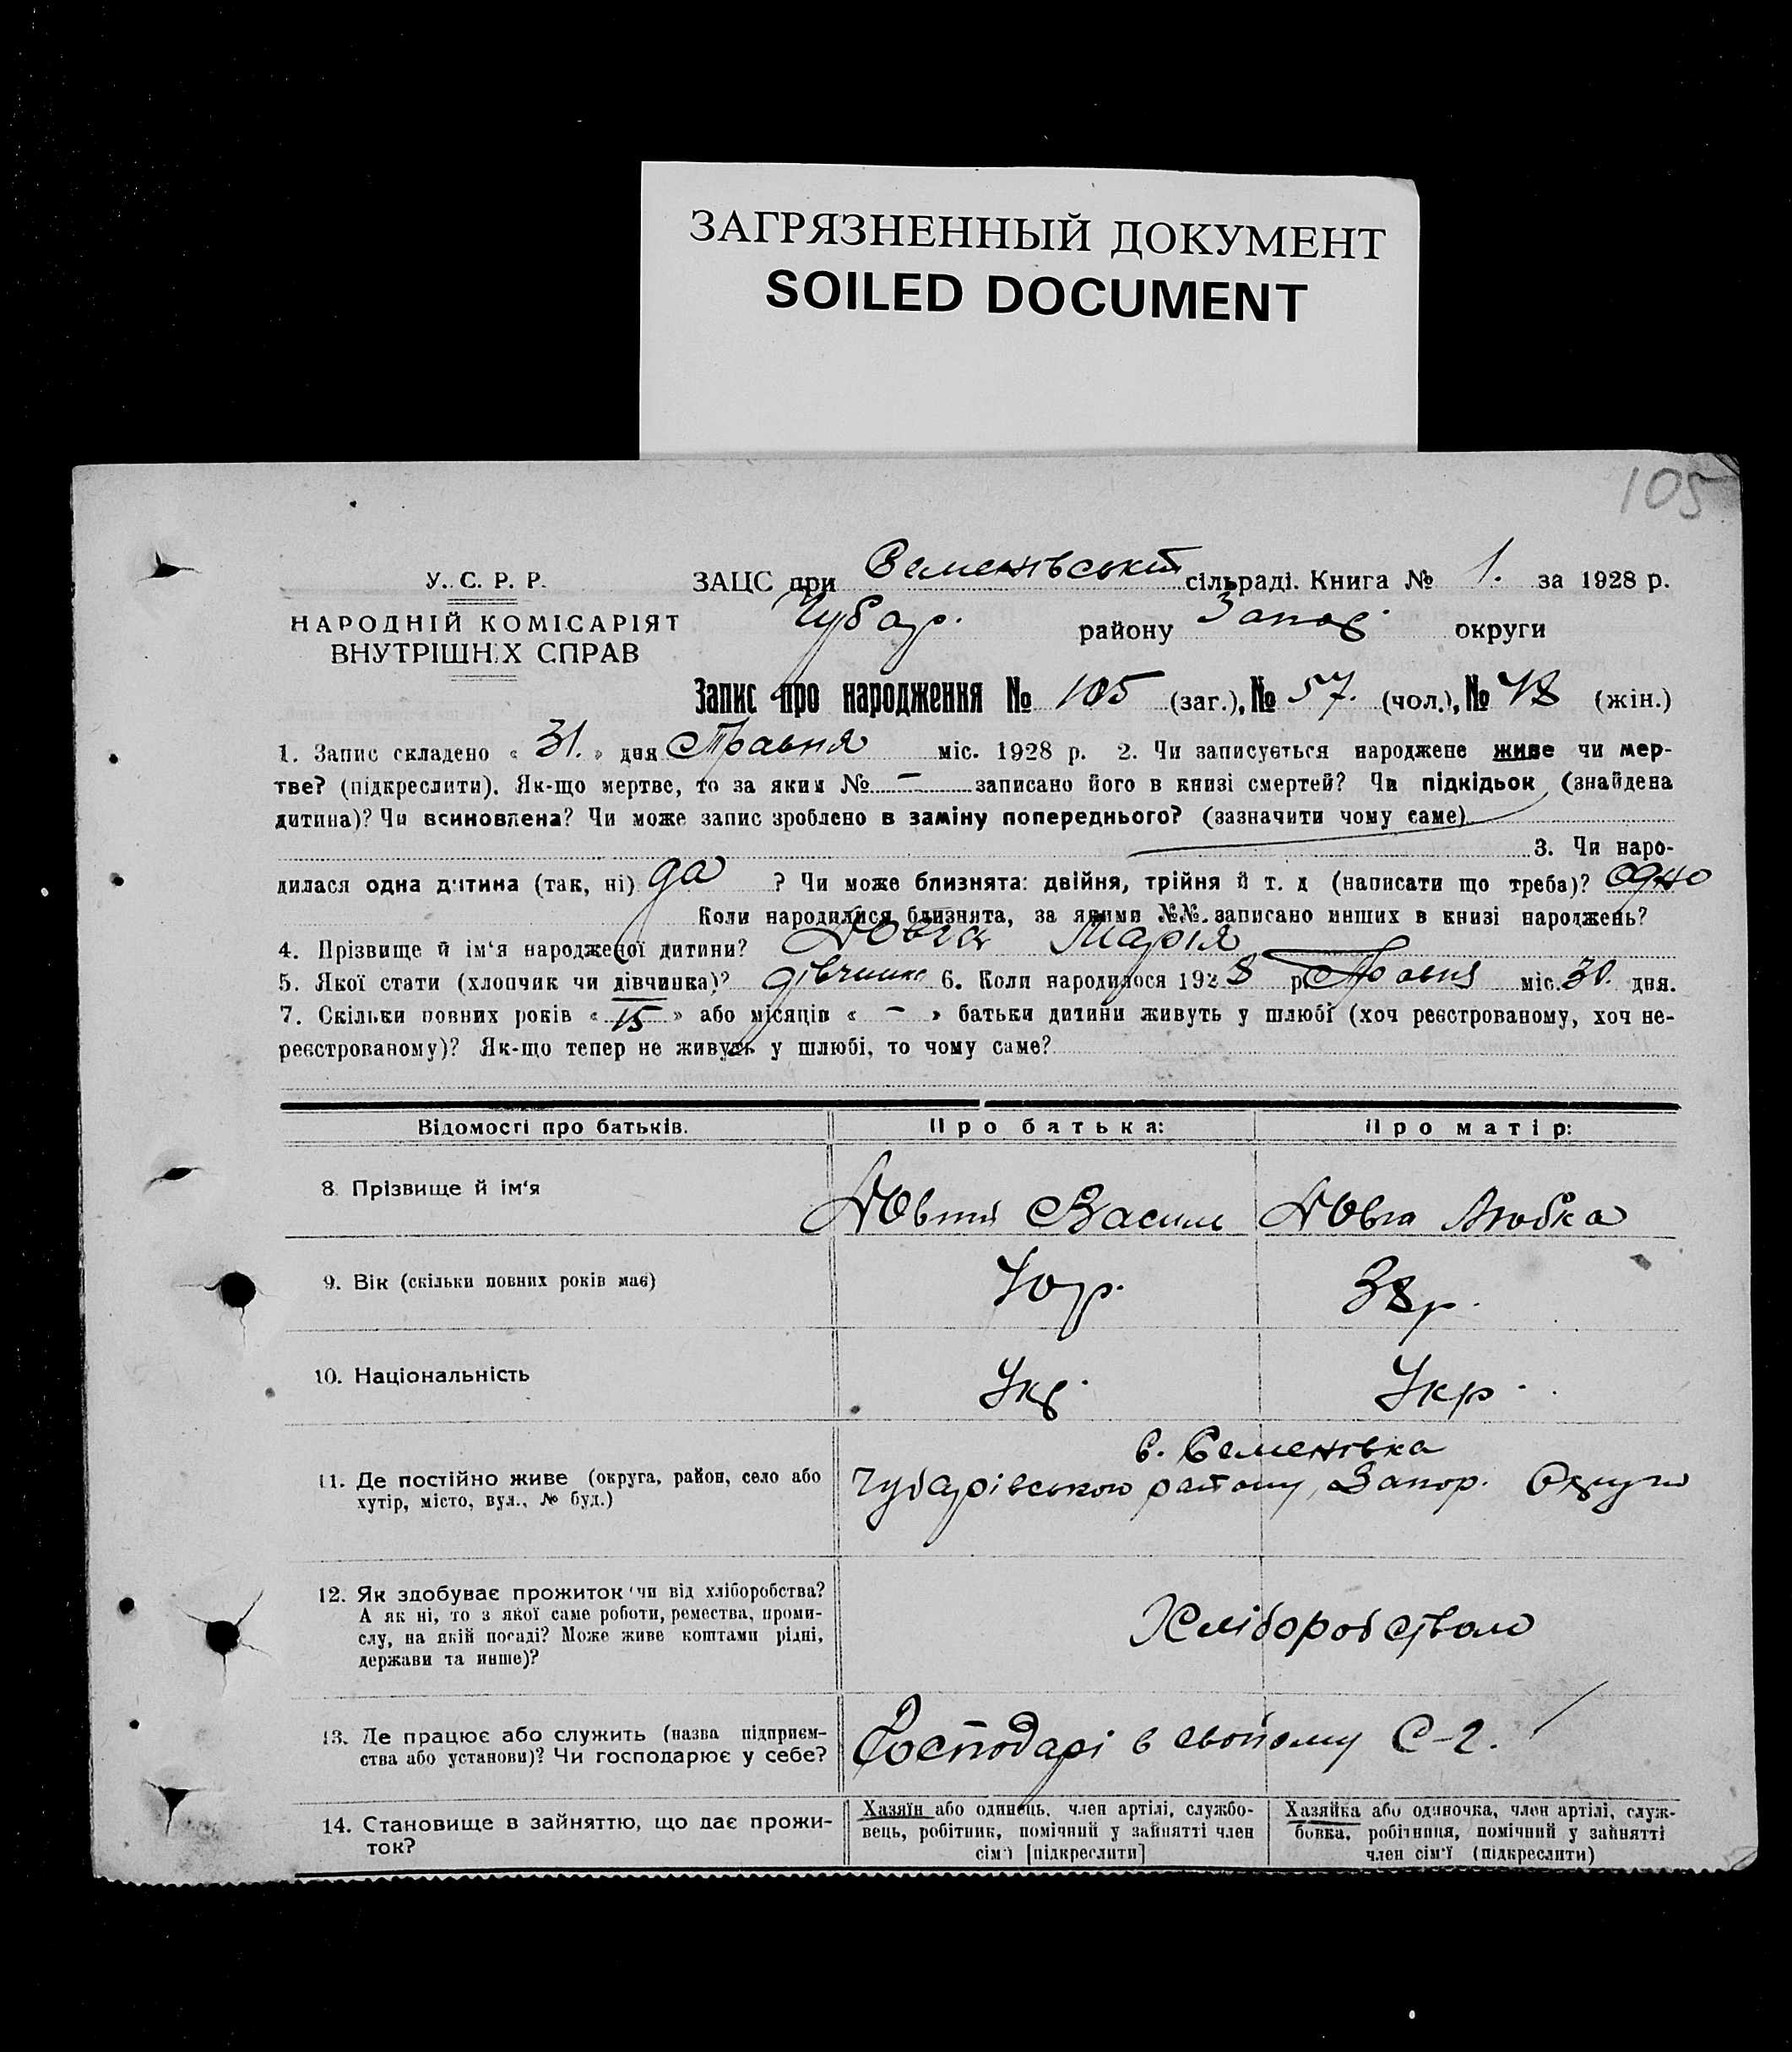 ЗАГРЯЗНЕННЫЙ ДОКУМЕНТ
SOILED DOCUMENT
105
У. С. Р. Р.
НАРОДНІЙ КОМІСАРІЯТ
ВНУТРІШНІХ СПРАВ
ЗАЦС при Семенівській сільраді. Книга № 1. за 1928 р.
Чубар. району Запор. округи
Запис про народження № 105 (заг.), № 57. (чол.), № 48 (жін.)
1. Запис складено « 31. » дня Травня міс. 1928 р. 2. Чи записується народжене живе чи мер-
тве? (підкреслити). Як-що мертве, то за яким № — записано його в книзі смертей? Чи підкідьок (знайдена
дитина)? Чи всиновлена? Чи може запис зроблено в заміну попереднього? (зазначити чому саме)
3. Чи наро-
дилася одна дитина (так, ні) да ? Чи може близнята: двійня, трійня й т. д (написати що треба)? одно
Коли народилися близнята, за якими №№ записано инших в книзі народжень?
4. Прізвище й ім'я народженої дитини? Довга Марія
5. Якої стати (хлопчик чи дівчинка)? дівчинка 6. Коли народилося 1928 р. Травня міс. 30. дня.
7. Скільки повних років « 15 » або місяців « — » батьки дитини живуть у шлюбі (хоч реєстрованому, хоч не-
реєстрованому)? Як-що тепер не живуть у шлюбі, то чому саме?
Відомості про батьків. Про батька: Про матір:
8. Прізвище й ім'я Довгий Василь Довга Любка
9. Вік (скільки повних років має) 40 р. 38 р.
10. Національність Укр. Укр.
с. Семенівка
11. Де постійно живе (округа, район, село або Чубарівського району, Запор. Округи
хутір, місто, вул., № буд.)
12. Як здобуває прожиток чи від хліборобства?
А як ні, то з якої саме роботи, ремества, проми-
слу, на якій посаді? Може живе коштами рідні,
держави та инше)?
Хліборобством
13. Де працює або служить (назва підприєм-
ства або установи)? Чи господарює у себе?
Господарі в свойому С-г.
14. Становище в зайняттю, що дає прожи-
ток?
Хазяїн або одинець, член артілі, службо-
вець, робітник, помічний у зайнятті член
сім'ї [підкреслити]
Хазяйка або одиночка, член артілі, служ-
бовка, робітниця, помічний у зайнятті
член сім'ї (підкреслити)